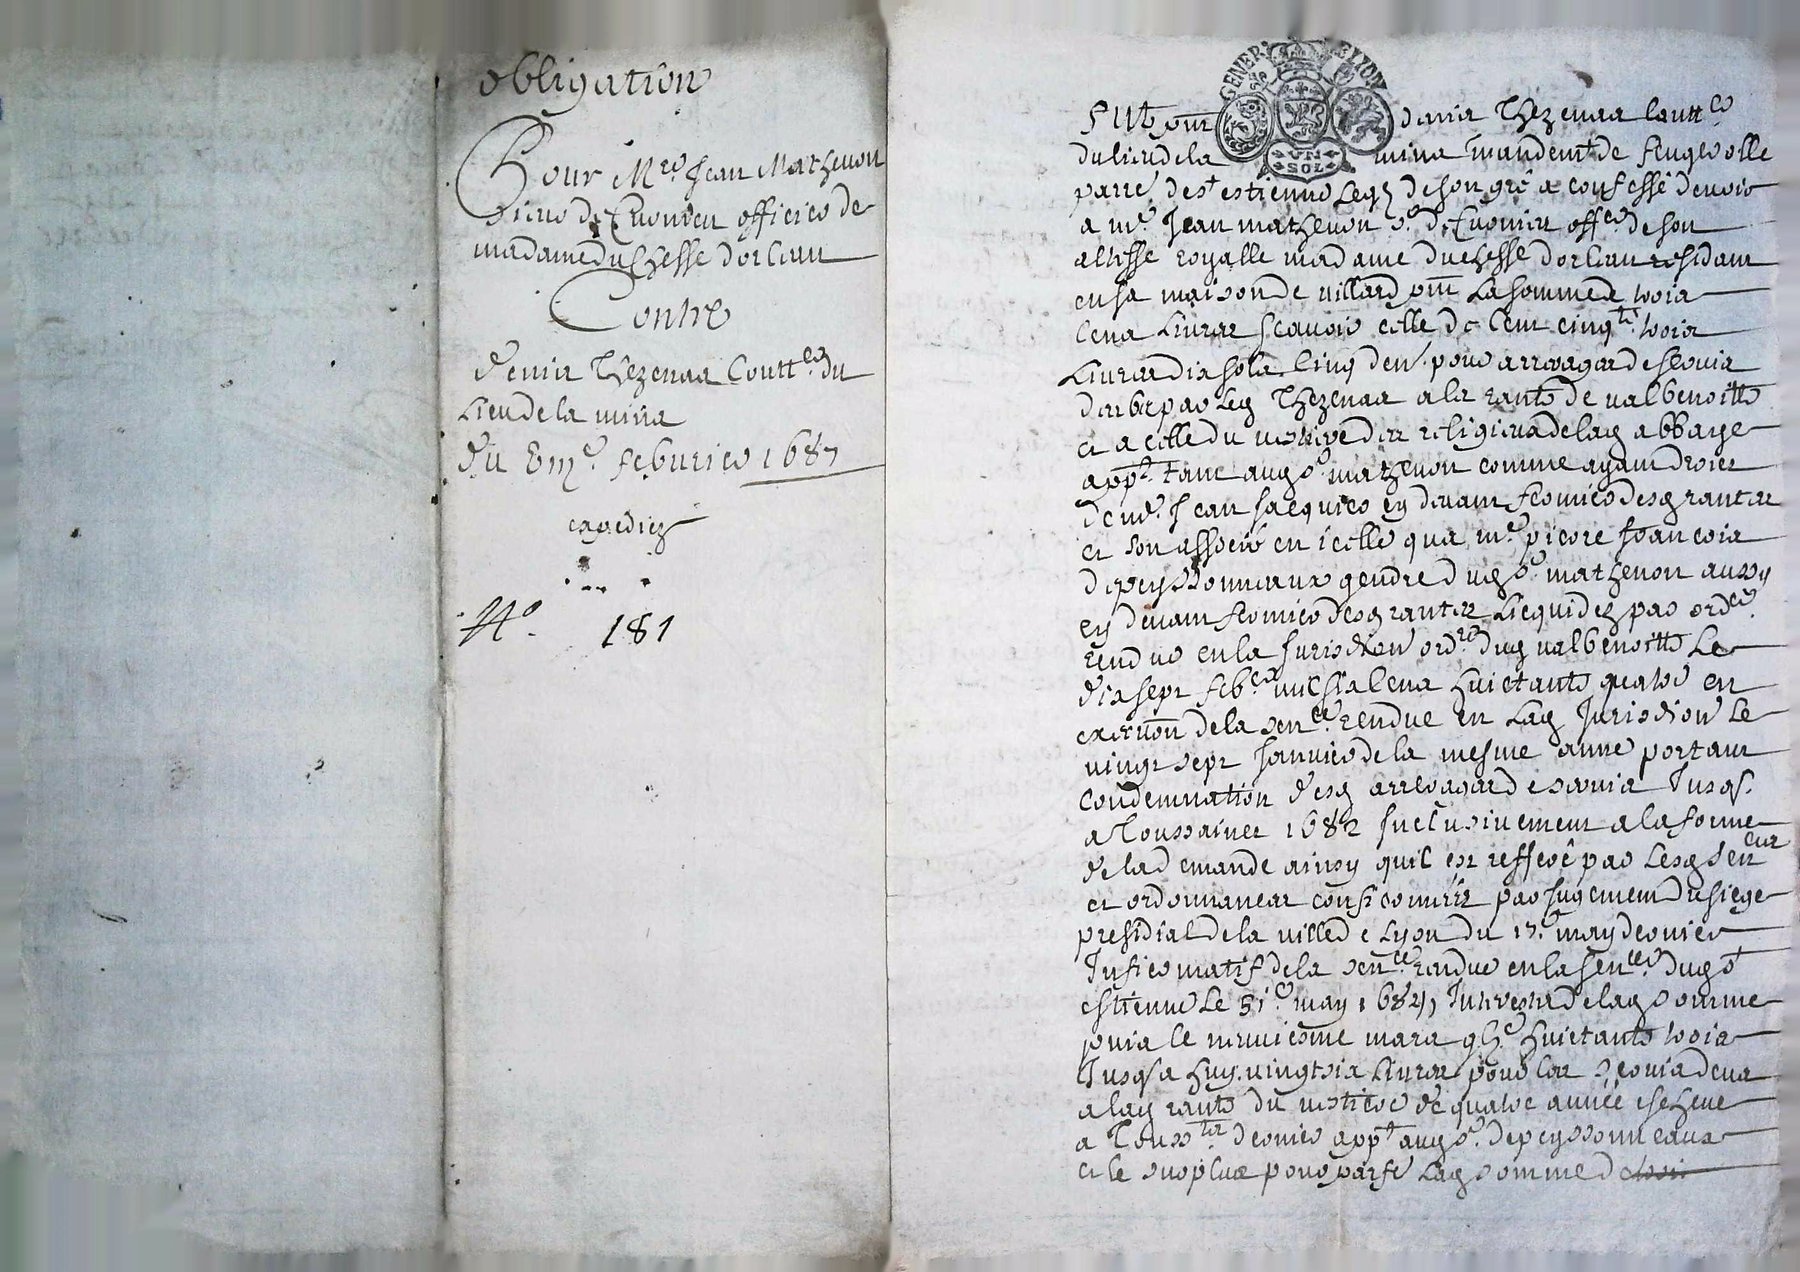 obligation
Pour Mre Jean Mathevon
sieur de Curnieu officier de
madame duchesse dorlean
Contre
denis Thezenas Coutt.er du
Lieu de la mina
du 8me feburier 1687
expediez
No. 181
GENER LYON
UN
SOL
denis Thezenas Coutt.er
du lieu de la mina mandemt de feugerolle
parre de st estienne Leq de son gré a confessé devoir
a mre Jean mathevon sr de Curnieu offer de son
altesse royalle madame duchesse dorlean residant
en sa maison de villard pnt La somme de trois
cens Livres scavoir celle de cent cinqte trois
Livres dix sols cinq den. pour arrerages de servis
deubz par Leq Thezenas a la rante de valbenoitte
et a celle du vestiere des religieux de laq abbaye
appt tant auq sr mathevon comme ayant droict
de me Jean Jacquier cy devant fermier desq rantes
et son associé en icelle qua me pierre francois
depeyssonneaux gendre duq sr mathevon aussy
cy devant fermier desq rantes Liequidez par ordce
rendue en la Jurisdion ordre duq valbenoitte Le
dix sept feber mil six cens huictante quatre en
exeuon de la sence rendue en Laq Jurisdion Le
vingt sept Janvier de la mesme anné portant
condemnation desq arrerages de servis Jusq.
a Toussainct 1682 Inclusivement a la forme
de la demande ainsy quil est refferé par Lesq sences
et ordonnances confirmées par Jugement du siege
presidial de la ville de Lyon du 17e may dernier
Infirmatif de la sence rendue en la sencée duq st
estienne Le 31e may 1684, Interests de laq somme
puis le neuviesme mars huictante trois
Jusq a huy. vingt six Livres pour les servis deus
a laq rante du vestiere de quatre année escheue
a Touss.ts dernier appt auq sr. depeyssonneaux
et le surplus pour parfe Laq somme de